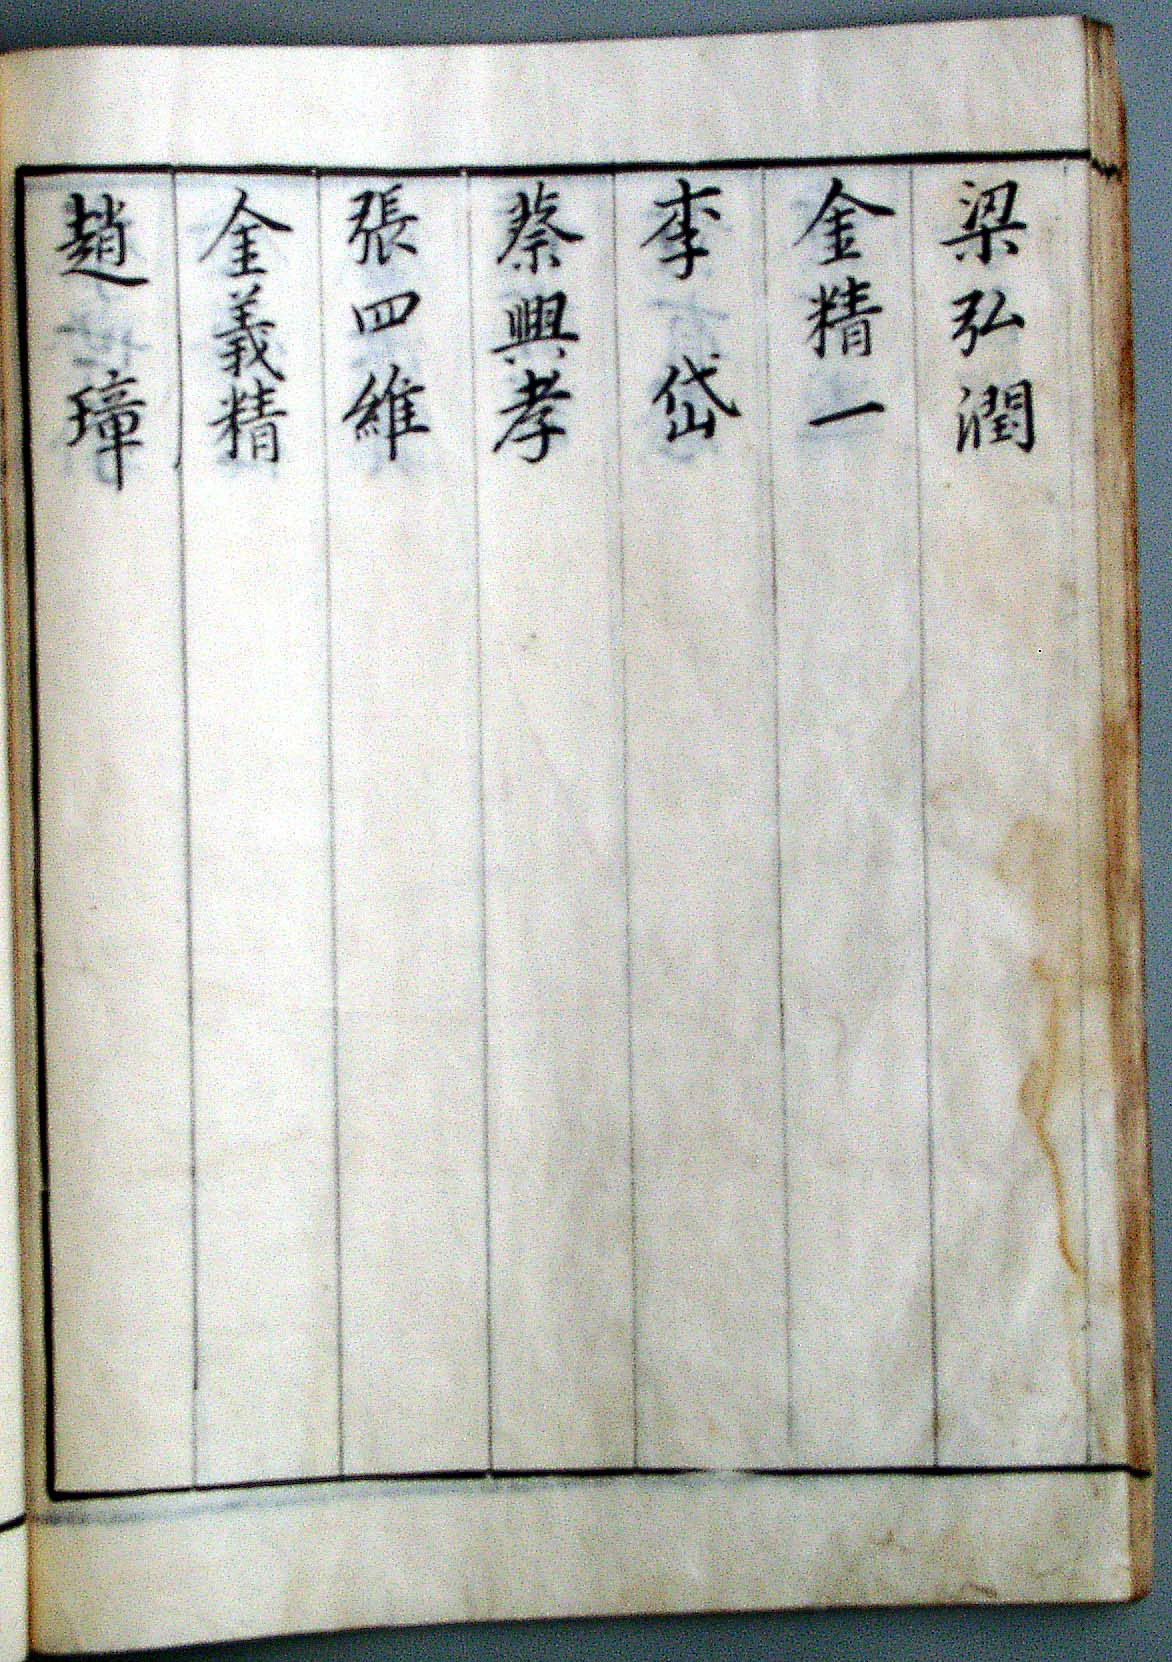 梁弘潤
金精一
李岱
蔡興孝
張四維
金義精
趙璋